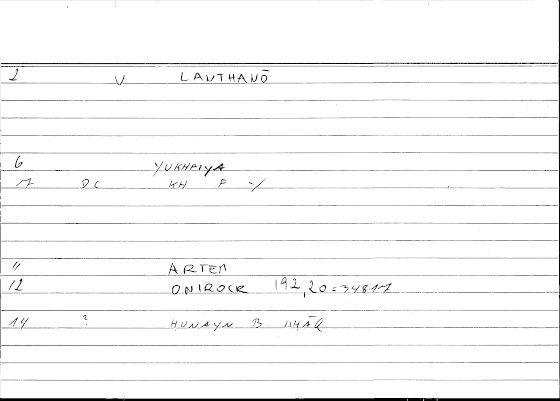 2 V LANTHANŌ
6 YUKHFIYA
DC KH F Y
" ARTEM
12 ONIROCR 192,20 = 348
14 ? HUNAYN B. ISHĀQ